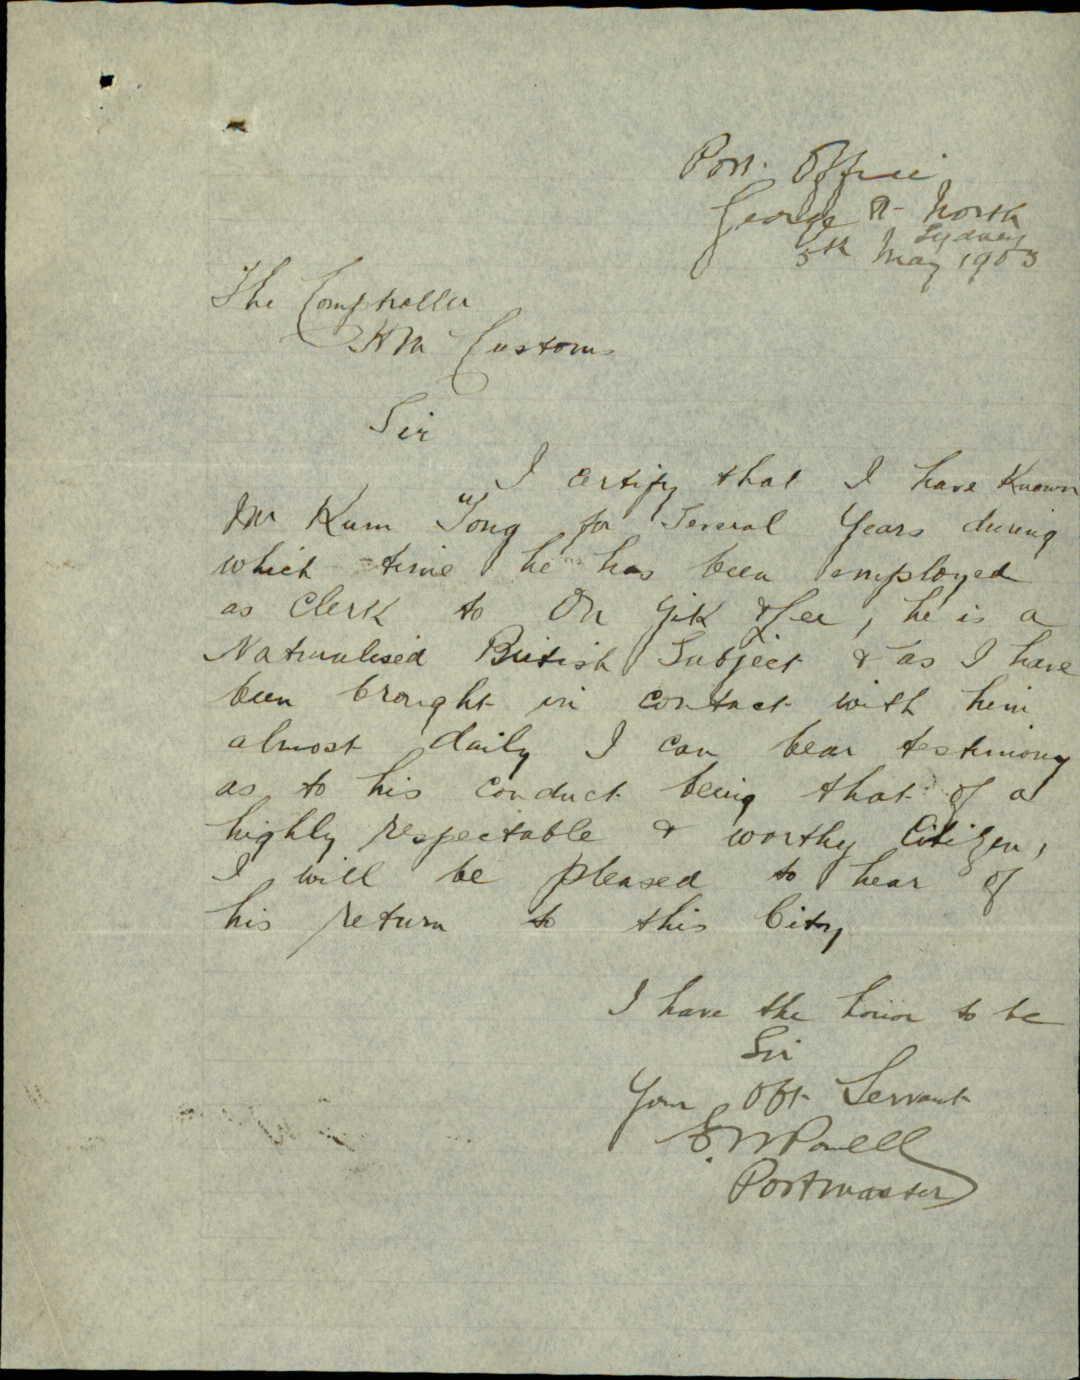 Post Office
George St North
Sydney
5th May 1903
The Comptroller
H M Customs
Sir
I certify that I have Known
Mr Kum Tong for Several Years during
which time he has been employed
as Clerk to On Yik & Lee, he is a
Naturalised British Subject & as I have
been brought in contact with him
almost daily I can bear testimony
as to his conduct being that of a
highly respectable & worthy Citizen,
I will be pleased to hear of
his return to this City
I have the honor to be
Sir
Your Obt Servant
Powell
Postmaster